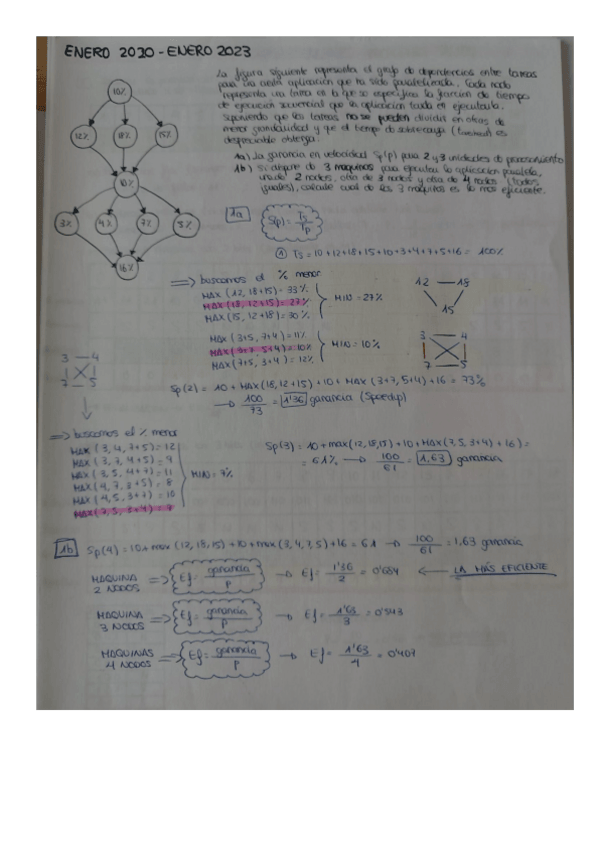 ENERO 2020 - ENERO 2023
La figura siguiente representa el grafo de dependencias entre tareas
para una cierta aplicación que ha sido paralelizada. Cada nodo
representa una tarea en la que se especifica la fracción de tiempo
de ejecución secuencial que la aplicación tarda en ejecutarla.
Suponiendo que las tareas no se pueden dividir en otras de
menor granularidad y que el tiempo de sobrecarga (overhead) es
despreciable obtenga:
1a) La ganancia en velocidad Sp(p) para 2 y 3 unidades de procesamiento
1b) Si dispone de 3 maquinas para ejecutar la aplicación paralela,
una de 2 nodos, otra de 3 nodos y otra de 4 nodos (todos
iguales), calcule cual de las 3 maquinas es la más eficiente.
10%
12% 18% 15%
10%
3% 4% 7% 5%
16%
1a
S(p) = Ts / Tp
① Ts = 10+12+18+15+10+3+4+7+5+16 = 100%
⇒ buscamos el % menor
MAX (12, 18+15) = 33%
MAX (18, 12+15) = 27%
MAX (15, 12+18) = 30%
MIN = 27%
12 — 18
15
MAX (3+5, 7+4) = 11%
MAX (3+7, 5+4) = 10%
MAX (7+5, 3+4) = 12%
MIN = 10%
3 — 4
7 — 5
Sp(2) = 10 + MAX (18, 12+15) + 10 + MAX (3+7, 5+4) + 16 = 73%
→ 100/73 = 1'36 ganancia (Speedup)
3 — 4
7 5
⇒ buscamos el % menor
MAX (3, 4, 7+5) = 12
MAX (3, 7, 4+5) = 9
MAX (3, 5, 4+7) = 11
MAX (4, 7, 3+5) = 8
MAX (4, 5, 3+7) = 10
MAX (7, 5, 3+4) = 7
MIN = 7%
Sp(3) = 10 + max (12, 18, 15) + 10 + MAX (7, 5, 3+4) + 16 =
= 61% → 100/61 = 1,63 ganancia
1b
Sp(4) = 10 + max (12, 18, 15) + 10 + max (3, 4, 7, 5) + 16 = 61 → 100/61 = 1,63 ganancia
MAQUINA 2 NODOS ⇒ Ef = ganancia / p → Ef = 1'36 / 2 = 0'684 ← LA MÁS EFICIENTE
MAQUINA 3 NODOS ⇒ Ef = ganancia / p → Ef = 1'63 / 3 = 0'543
MAQUINAS 4 NODOS ⇒ Ef = ganancia / p → Ef = 1'63 / 4 = 0'407